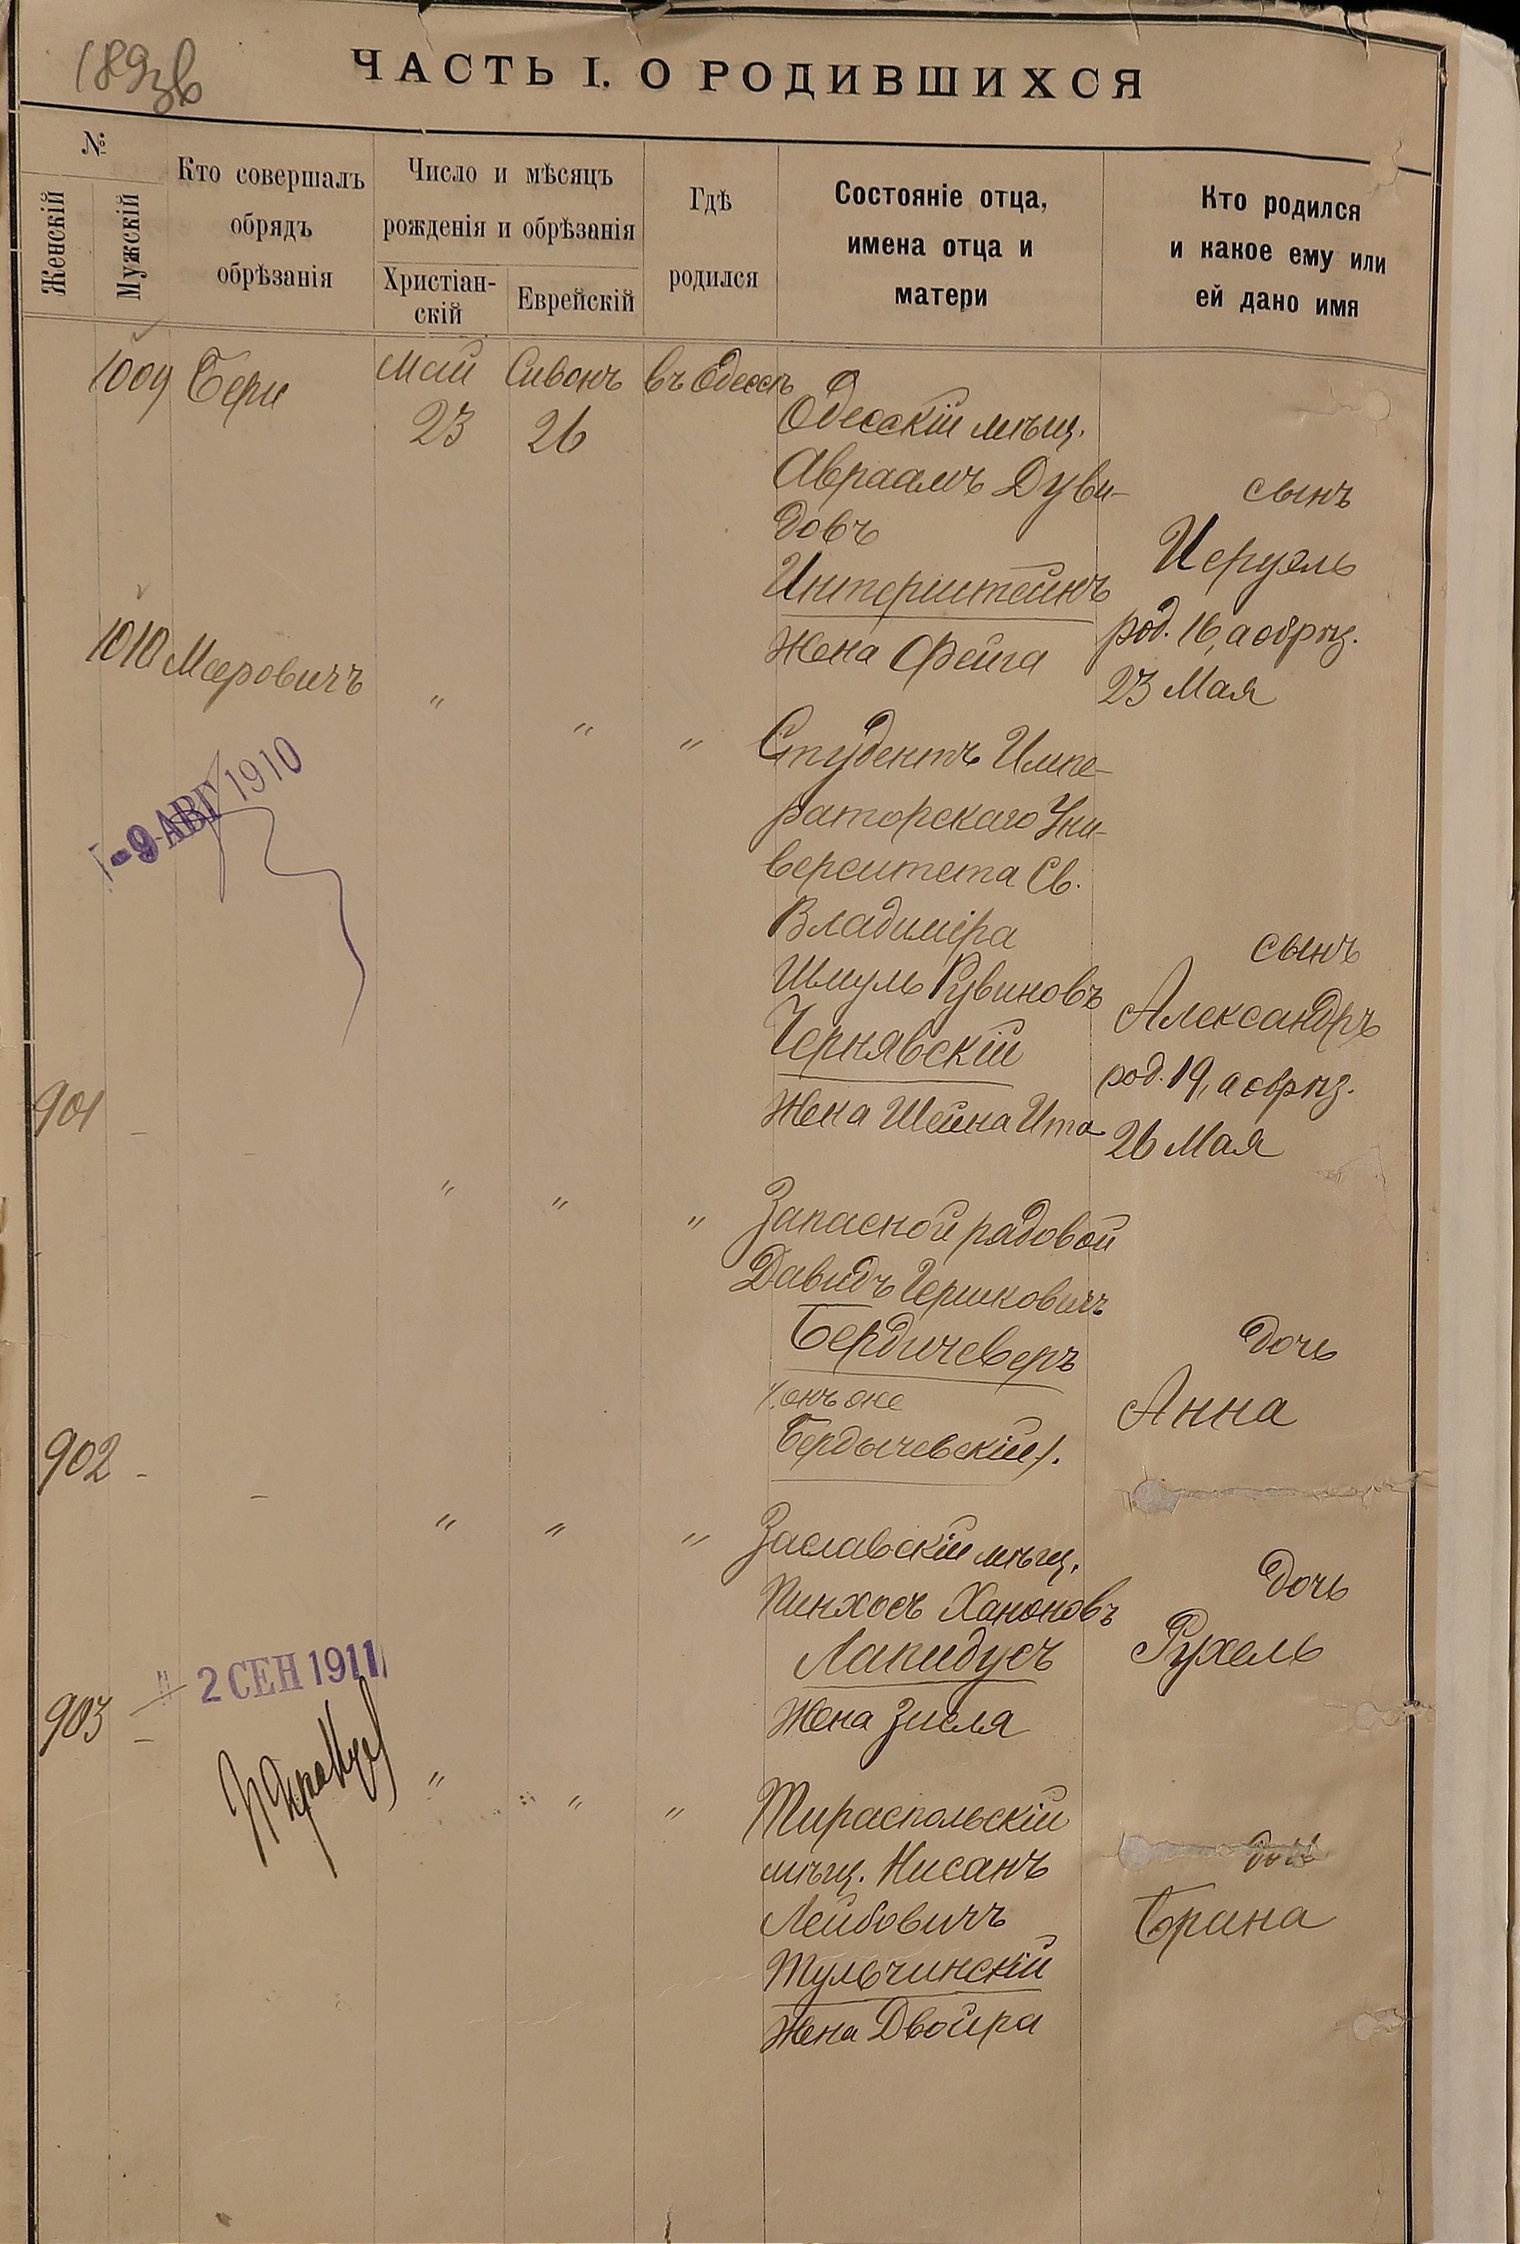 ЧАСТЬ I. О РОДИВШИХСЯ
№
Женскій
Мужскій
Кто совершалъ
обрядъ
обрѣзанія
Число и мѣсяцъ
рожденія и обрѣзанія
Христіан-
скій
Еврейскій
Гдѣ
родился
Состояніе отца,
имена отца и
матери
Кто родился
и какое ему или
ей дано имя
1009 Бери
Май
23
Сивонъ
26
въ Одессѣ
Одесскій мѣщ.
Авраамъ Дуви-
довъ
Интерштейнъ
Жена Фейга
сынъ
Иеруэль
род. 16, а обрѣз.
23 Мая
1010 Мееровичъ
"
"
"
-9 АВГ 1910
Студентъ Импе-
раторскаго Уни-
верситета Св.
Владиміра
Шмуль Рувиновъ
Чернявскій
Жена Шейна Ита
сынъ
Александръ
род. 19, а обрѣз.
26 Мая
901 -
-
"
"
"
Запасной рядовой
Давидъ Гершковичъ
Бердичеверъ
/онъ же
Бердычевскій/.
дочь
Анна
902 -
-
"
"
"
Заславскій мѣщ.
Пинхосъ Ханоновъ
Лапидусъ
Жена Зисля
дочь
Рухель
2 СЕН 1911
903 -
"
"
"
Тираспольскій
мѣщ. Нисанъ
Лейбовичъ
Тульчинскій
Жена Двойра
дочь
Брана